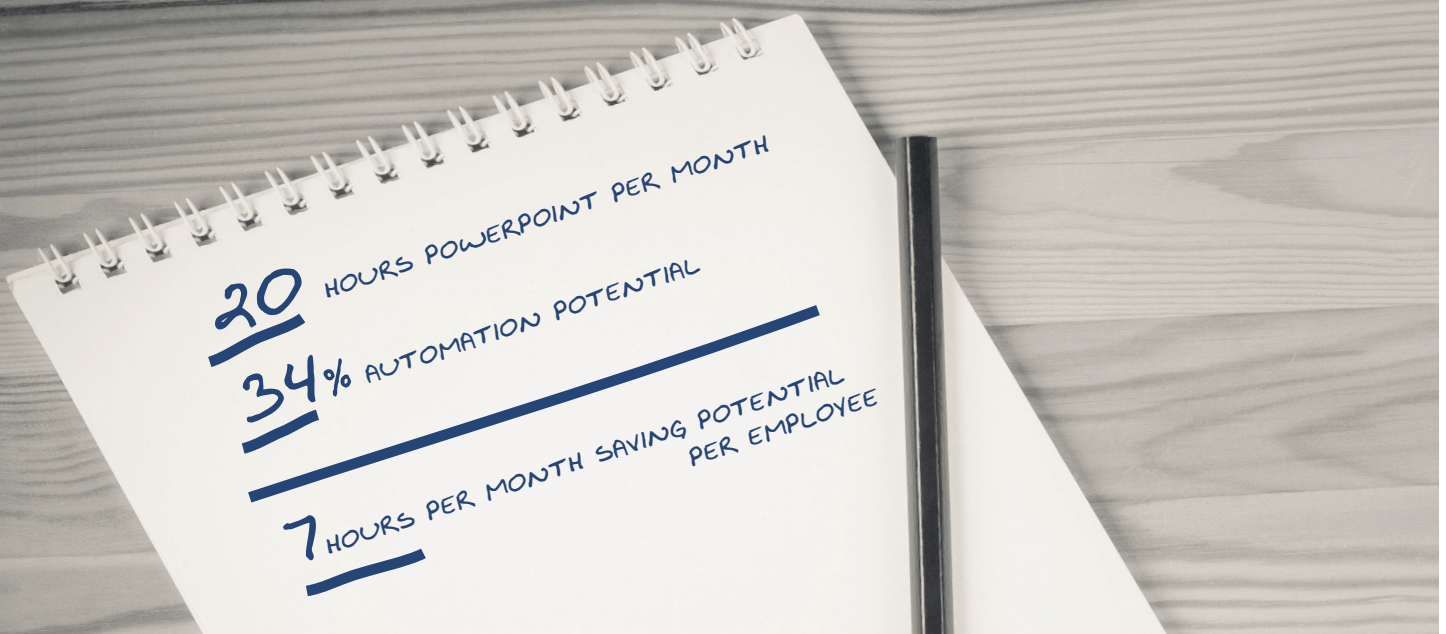 20 HOURS POWERPOINT PER MONTH
34% AUTOMATION POTENTIAL
7 HOURS PER MONTH SAVING POTENTIAL
PER EMPLOYEE